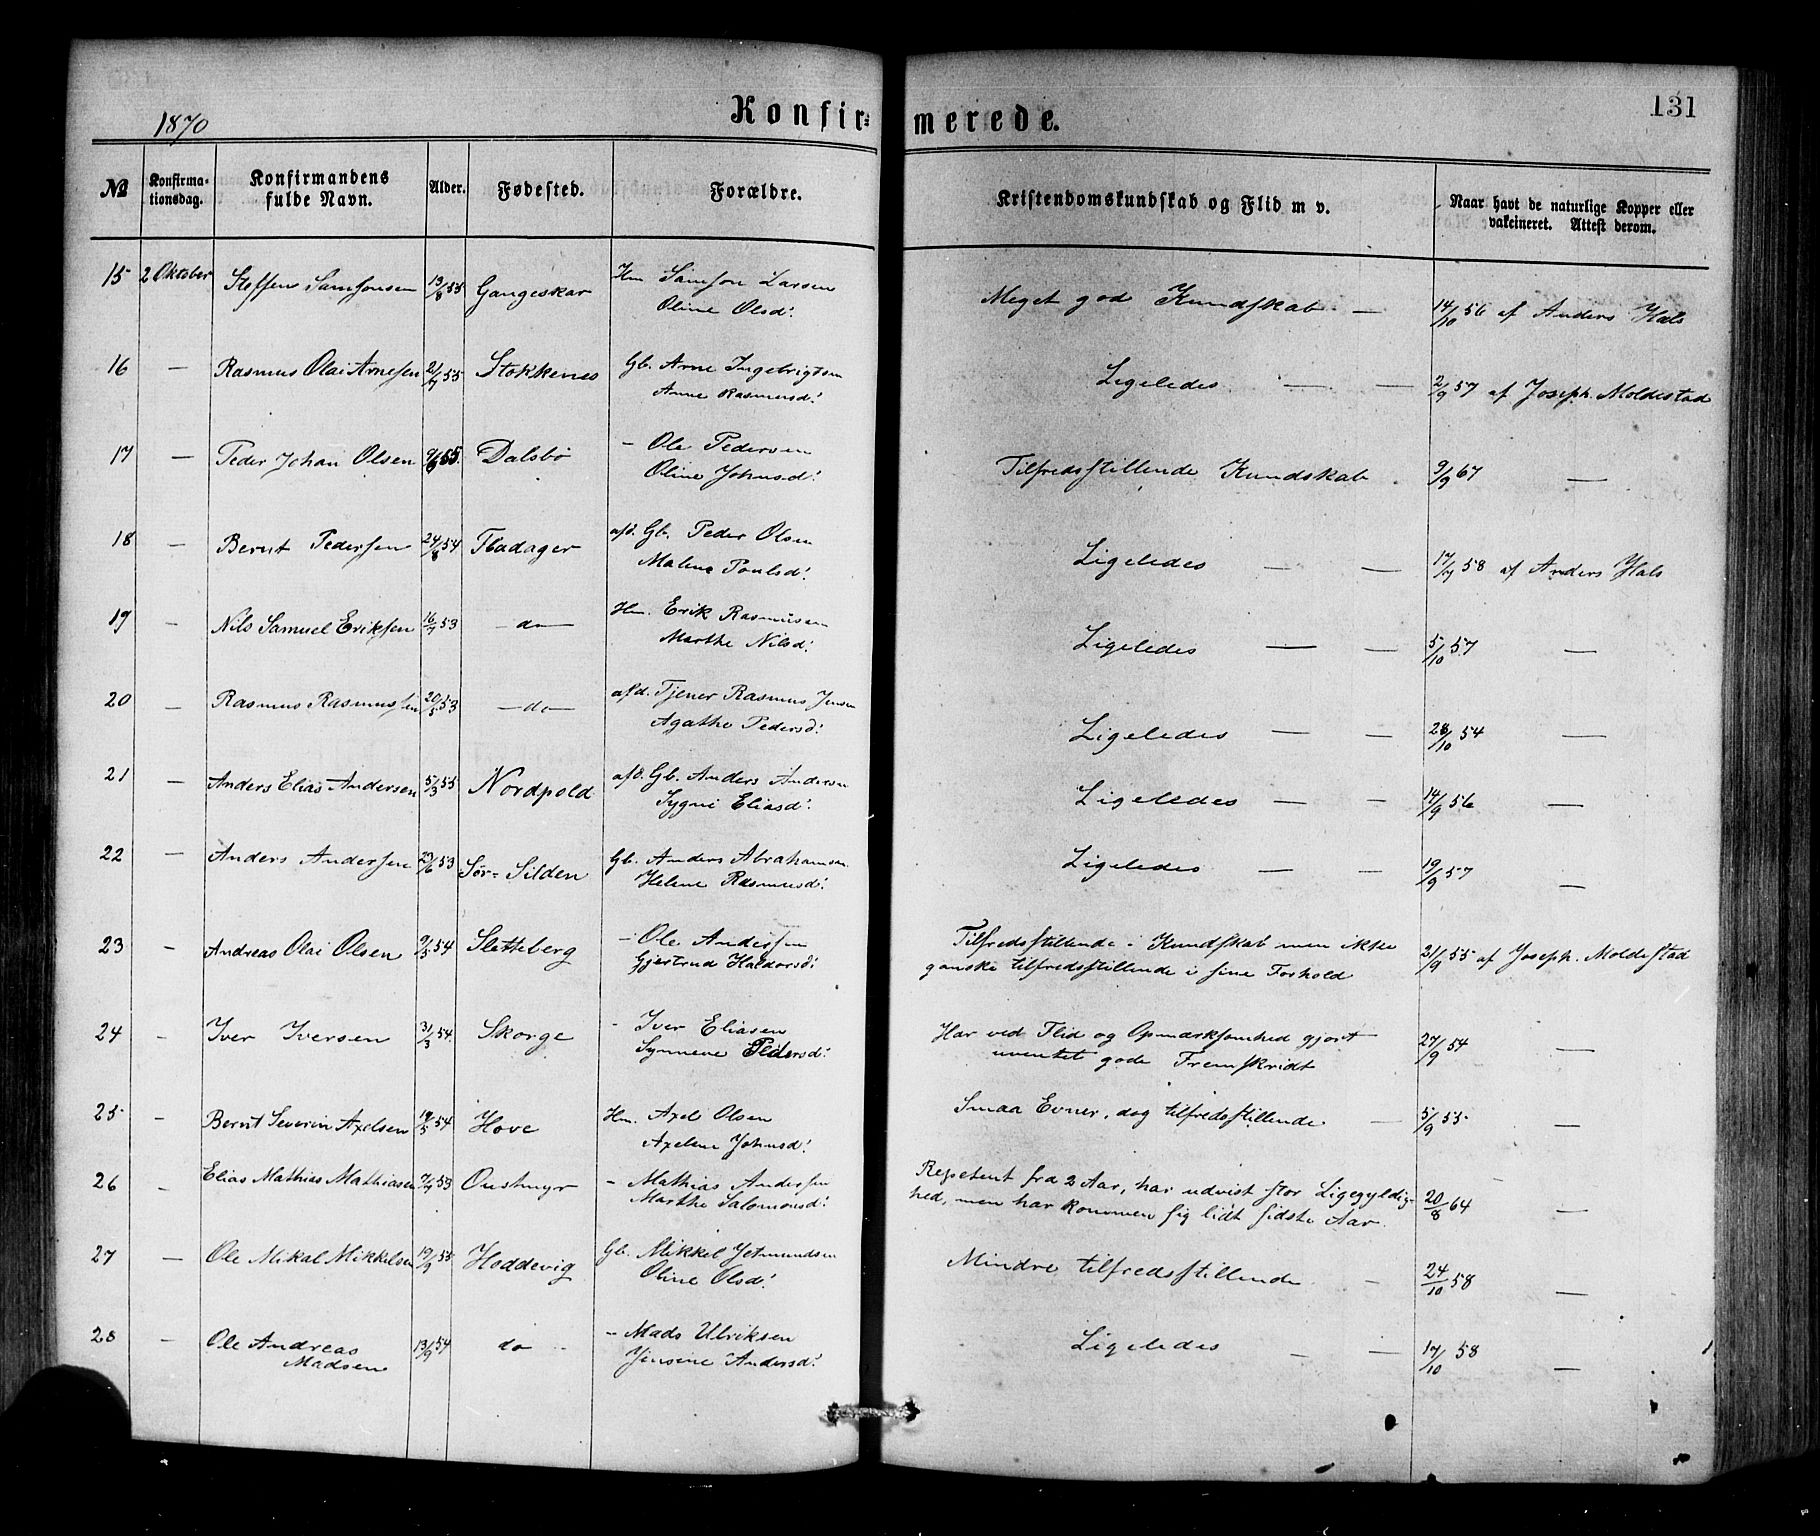 1870 Konfirmerede. 131
№ Konfirmationsdag. Konfirmandens fulde Navn. Alder. Fødested. Forældre. Kristendomskundskab og Flid m v. Naar havt de naturlige Kopper eller vakcineret. Attest derom.
15 2 Oktober Steffen Samsonsen 13/8 55 Gangeskar Hm Samson Larsen Meget god Kundskab — 14/10 56 af Anders Hals
Oline Olsd!
16 — Rasmus Olai Arnesen 21/7 55 Stokkenes Gb. Arne Ingebrigtsen Ligeledes — — 2/9 57 af Joseph. Moldestad
Anne Rasmusd!
17 — Peder Johan Olsen 9/6 55. Dalsbø — Ole Pedersen Tilfredsstillende Kundskab. 9/9 67 —
Oline Johnsd!
18 — Bernt Pedersen 24/8 54 Fladager afd. Gb. Peder Olsen Ligeledes — — 17/7 58 af Anders Hals
Malene Poulsd!
19 — Nils Samuel Eriksen 16/7 53 — do — Hm. Erik Rasmusen Ligeledes — — 5/10 57 —
Marthe Nilsd!
20 — Rasmus Rasmussen 20/5 53 — do — afd. Tjener Rasmus Jensen Ligeledes — — 28/10 54 —
Agathe Pedersd!
21 — Anders Elias Andersen 5/3 55 Nordpold afd. Gb. Anders Andersen Ligeledes — — 14/9 56 —
Sygni Eliasd!
22 — Anders Andersen 29/6 53 Sør-Silden Gb. Anders Abrahamsen Ligeledes — — 19/9 57 —
Helene Rasmusd!
23 — Andreas Olai Olsen 9/5 54 Sletteberg — Ole Andersen Tilfredsstillende i Kundskab men ikke 21/9 55 af Joseph. Moldestad
Gjertrud Haldorsd! ganske tilfredsstillende i sine Forhold
24 — Iver Iversen 31/3 54. Skorge — Iver Eliasen Har ved Flid og Opmærksomhed gjort 27/9 54 —
Synneve Pedersd! uventet gode Fremskridt
25 — Bernt Severin Axelsen 19/5 54 Hove Hm. Axel Olsen Smaa Evner, dog tilfredsstillende — 5/9 55 —
Axeline Johnsd!
26 — Elias Mathias Mathiasen 7/7 53 Oustmyr — Mathias Andersen Repetent fra 2 Aar, har udvist stor Ligegyldig- 20/8 64 —
Marthe Salomonsd! hed, men har kommen sig lidt sidste Aar.
27 — Ole Mikal Mikkelsen 19/9 55 Hoddevig Gb. Mikkel Jetmundsen Mindre tilfredsstillende — 24/10 58 —
Oline Olsd!
28 — Ole Andreas 13/9 54 do — Mads Ulriksen Ligeledes — — 17/10 58 —
Madsen Jensine Andersd!